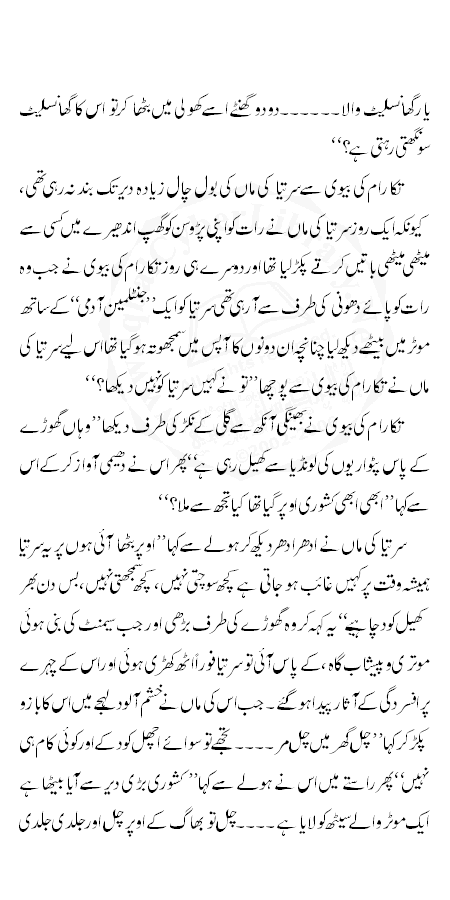 یا رگھانسلیٹ والا۔۔۔۔۔۔دو دو گھنٹے اسے کھولی میں بٹھا کر تو اس کا گھانسلیٹ
سونگھتی رہتی ہے؟‘‘
تکا رام کی بیوی سے سرتیا کی ماں کی بول چال زیادہ دیر تک بند نہ رہی تھی،
کیونکہ ایک روز سرتیا کی ماں نے رات کو اپنی پڑوسن کو گھپ اندھیرے میں کسی سے
میٹھی میٹھی باتیں کرتے پکڑ لیا تھا اور دوسرے ہی روز تکا رام کی بیوی نے جب وہ
رات کو پائے دھونی کی طرف سے آ رہی تھی سرتیا کو ایک ’’جنٹلمین آدمی‘‘ کے ساتھ
موٹر میں بیٹھے دیکھ لیا چنانچہ ان دونوں کا آپس میں سمجھوتہ ہو گیا تھا اس لیے سرتیا کی
ماں نے تکا رام کی بیوی سے پوچھا ’’تو نے کہیں سرتیا کو نہیں دیکھا؟‘‘
تکا رام کی بیوی نے بھینگی آنکھ سے گلی کے نکڑ کی طرف دیکھا ’’وہاں گھوڑے
کے پاس پٹواریوں کی لونڈیا سے کھیل رہی ہے‘‘ پھر اس نے دھیمی آواز کر کے اس
سے کہا ’’ابھی ابھی کشوری اوپر گیا تھا کیا تجھ سے ملا؟‘‘
سرتیا کی ماں نے ادھر ادھر دیکھ کر ہولے سے کہا ’’اوپر بٹھا آئی ہوں پر یہ سرتیا
ہمیشہ وقت پر کہیں غائب ہو جاتی ہے کچھ سوچتی نہیں، کچھ سمجھتی نہیں، بس دن بھر
کھیل کود چاہیے‘‘ یہ کہہ کر وہ گھوڑے کی طرف بڑھی اور جب سیمنٹ کی بنی ہوئی
موتری و پیشاب گاہ، کے پاس آئی تو سرتیا فوراً اٹھ کھڑی ہوئی اور اس کے چہرے
پر افسردگی کے آثار پیدا ہو گئے۔ جب اس کی ماں نے خشم آلود لہجے میں اس کا بازو
پکڑ کر کہا ’’چل گھر میں چل مر۔۔۔۔ تجھے تو سوائے اچھل کود کے اور کوئی کام ہی
نہیں‘‘ پھر راستے میں اس نے ہولے سے کہا ’’کشوری بڑی دیر سے آیا بیٹھا ہے
ایک موٹر والے سیٹھ کو لایا ہے۔۔۔۔ چل تو بھاگ کے اوپر چل اور جلدی جلدی